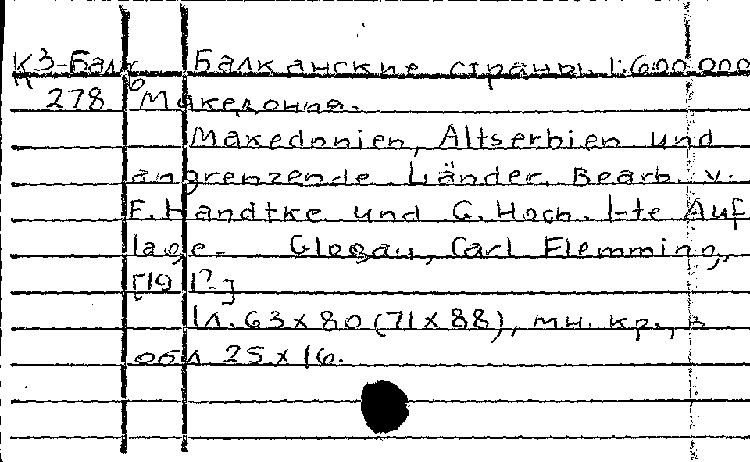 К3-Балк Балканские страны 1:600 000
К 6
278 Македония.
Makedonien, Altserbien und
angrenzende Länder. Bearb. v.
F. Handtke und G. Hoch. 1-te Auf
lage. Glogau, Carl Flemming,
[191?]
1л. 63 x 80 (71 x 88), мн. кр., в
обл. 25 x 16.